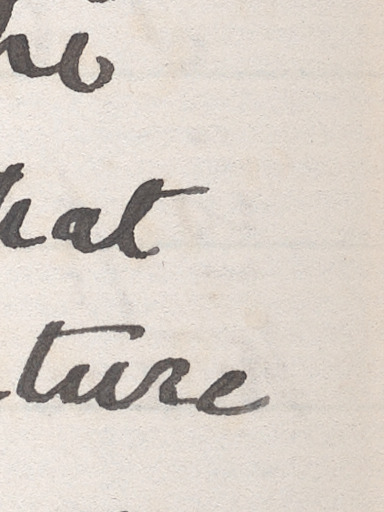 ho
hat
ture